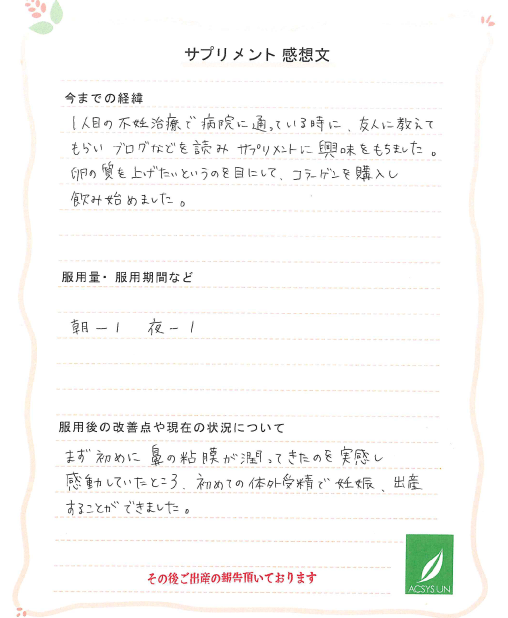 サプリメント 感想文
今までの経緯
1人目の不妊治療で病院に通っている時に、友人に教えて
もらい ブログなどを読み サプリメントに興味をもちました。
卵の質を上げたいというのを目にして、コラーゲンを購入し
飲み始めました。
服用量・服用期間など
朝ー1 夜ー1
服用後の改善点や現在の状況について
まず初めに 鼻の粘膜が潤ってきたのを実感し
感動していたところ、初めての体外受精で妊娠、出産
することができました。
その後ご出産の報告頂いております
ACSYS UN